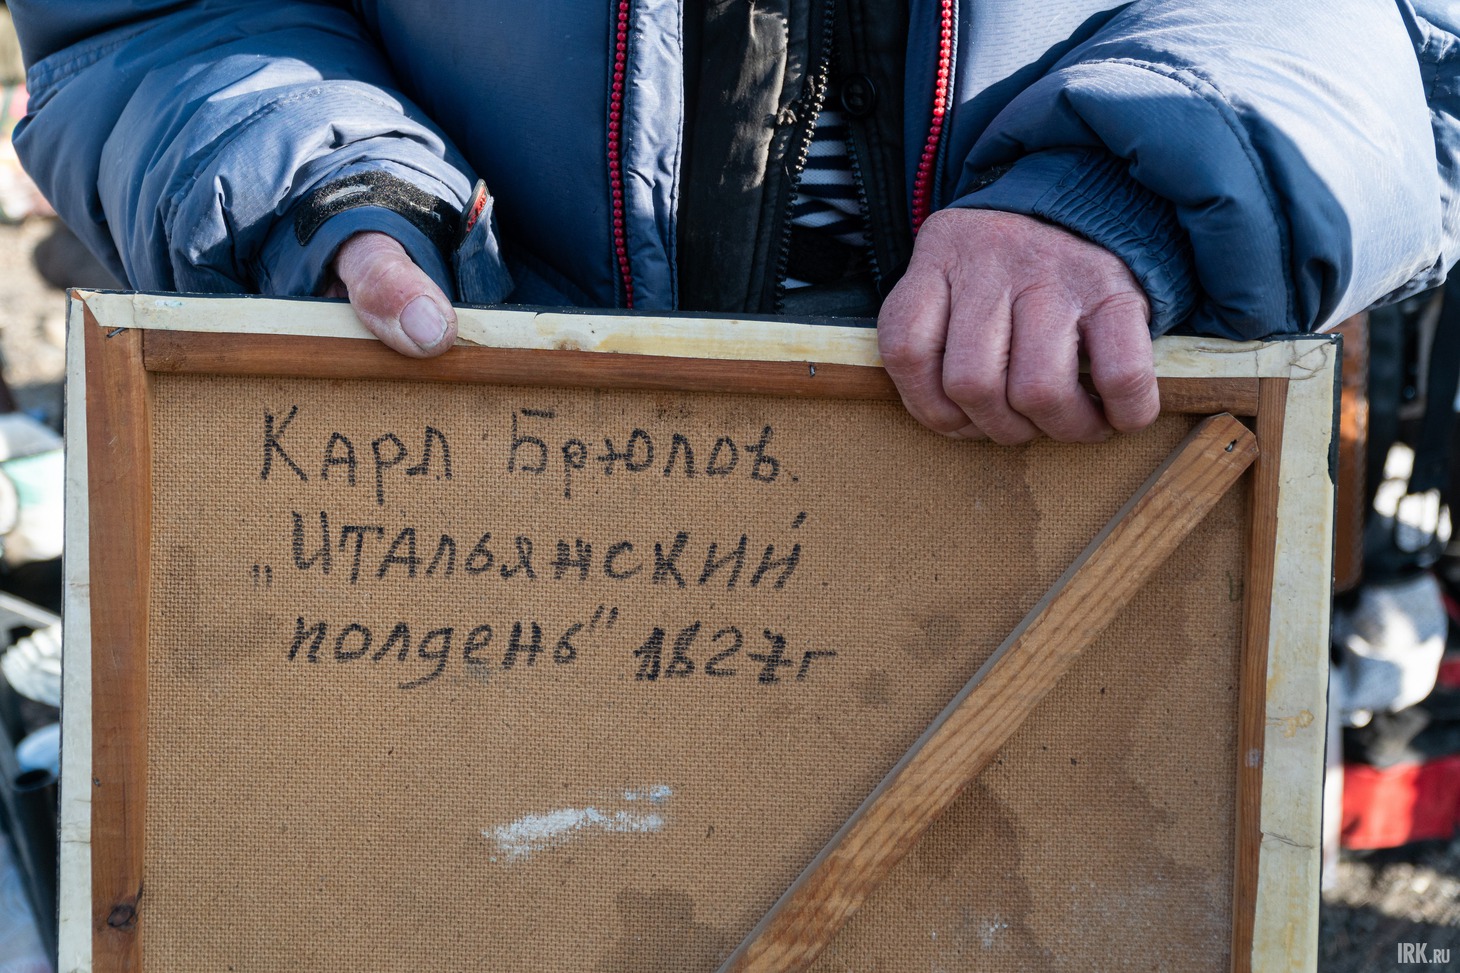 Карл Брюлов.
„Итальянский
полдень" 1827г
IRK.RU